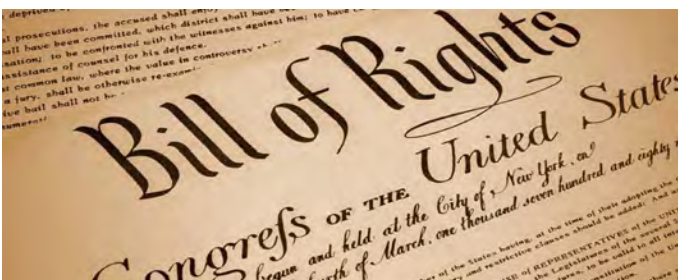 deprived of
prosecutions, the accused shall enjoy
shall have been committed, which district shall have
to be confronted with the witnesses against him; to have
assistance of counsel for his defence.
common law, where the value in controversy
a jury, shall be otherwise
bail shall not be
Bill of Rights
Congreſs OF THE United States
begun and held at the City of New York, on
of March, one thousand seven hundred and eighty
of the States having, at the time of their adopting the
and restrictive clauses should be added: And
of REPRESENTATIVES of the
the Legislatures of the several
be valid to all
of the